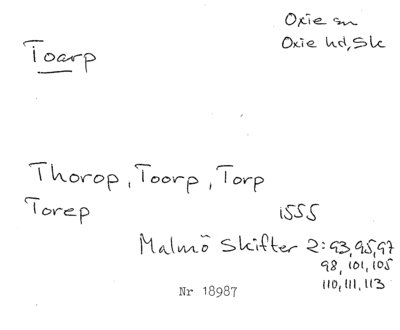 Oxie sn
Toarp
Oxie hd, Sk
Thorop, Toorp, Torp
Torep 1555
Malmö Skifter 2:93,95,97
98, 101, 105
110, 111, 113
Nr 18987